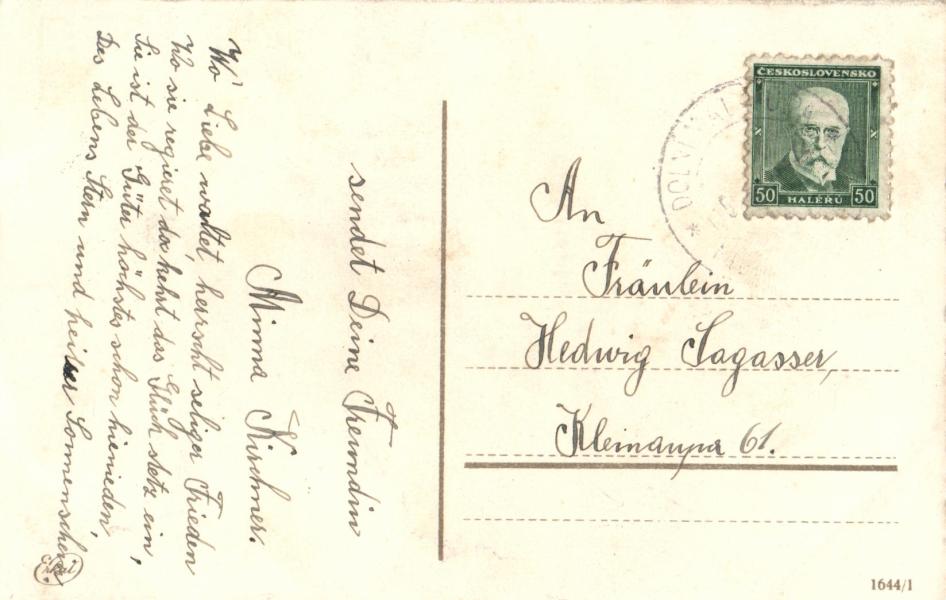 Wo Liebe waltet, herrscht seliger Frieden
Wo sie regieret da kehrt das Glück stetz ein,
Sie ist der Güter höchstes schon hienieden,
Des Lebens Stern und heitrer Sonnenschein.
sendet Deine Freundin
Minna Kirchner.
ČESKOSLOVENSKO
50 HALÉŘŮ 50
An
Fräulein
Hedwig Sagasser,
Kleinaupa 61.
Erkal
1644/1